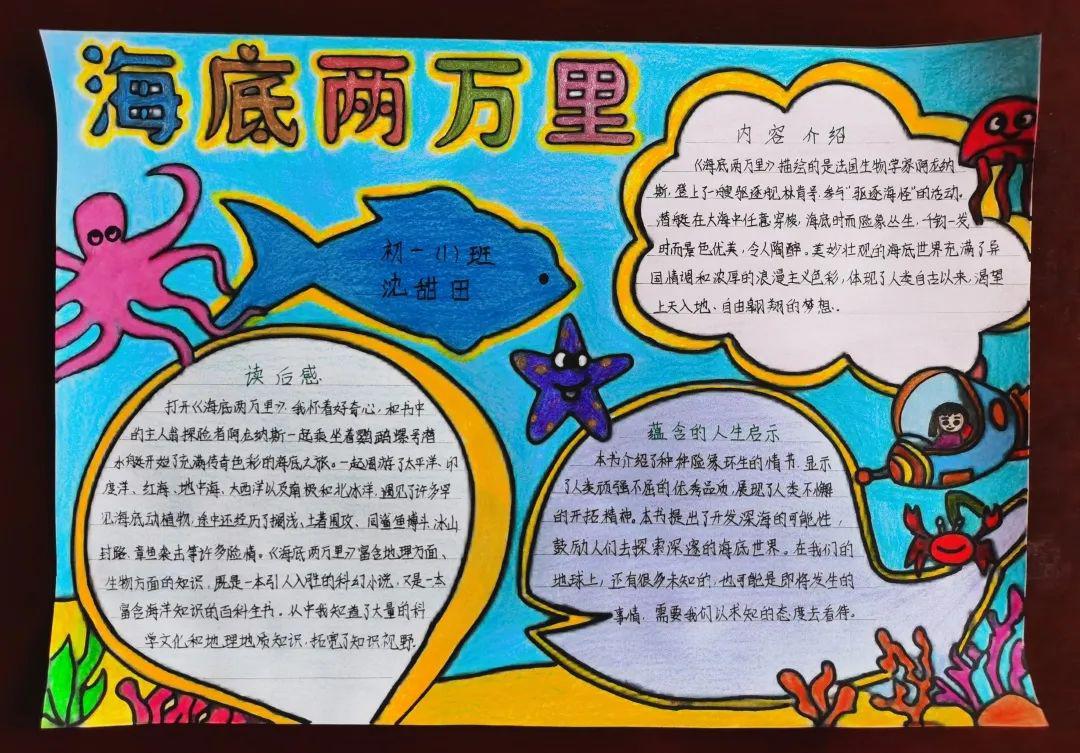 海底两万里
初一(1)班
沈甜田
内容介绍
《海底两万里》描绘的是法国生物学家阿龙纳
斯,登上了一艘驱逐舰林肯号,参与"驱逐海怪"的活动。
潜艇在大海中任意穿梭,海底时而险象丛生,千钧一发,
时而景色优美,令人陶醉。美妙壮观的海底世界充满了异
国情调和浓厚的浪漫主义色彩,体现了人类自古以来,渴望
上天入地、自由翱翔的梦想.
读后感
打开《海底两万里》,我怀着好奇心,和书中
的主人翁探险者阿龙纳斯一起乘坐着鹦鹉螺号潜
水艇开始了充满传奇色彩的海底之旅。一起周游了太平洋、印
度洋、红海、地中海、大西洋以及南极和北冰洋,遇见了许多罕
见海底动植物,途中还经历了搁浅、土著围攻、同鲨鱼搏斗、冰山
封路、章鱼袭击等许多险情。《海底两万里》富含地理方面、
生物方面的知识,既是一本引人入胜的科幻小说,又是一本
富含海洋知识的百科全书。从中我知道了大量的科
学文化和地理地质知识,拓宽了知识视野.
蕴含的人生启示
本书介绍了种种险象环生的情节,显示
了人类顽强不屈的优秀品质,展现了人类不懈
的开拓精神。本书提出了开发深海的可能性,
鼓励人们去探索深邃的海底世界。在我们的
地球上,还有很多未知的,也可能是即将发生的
事情,需要我们以求知的态度去看待。